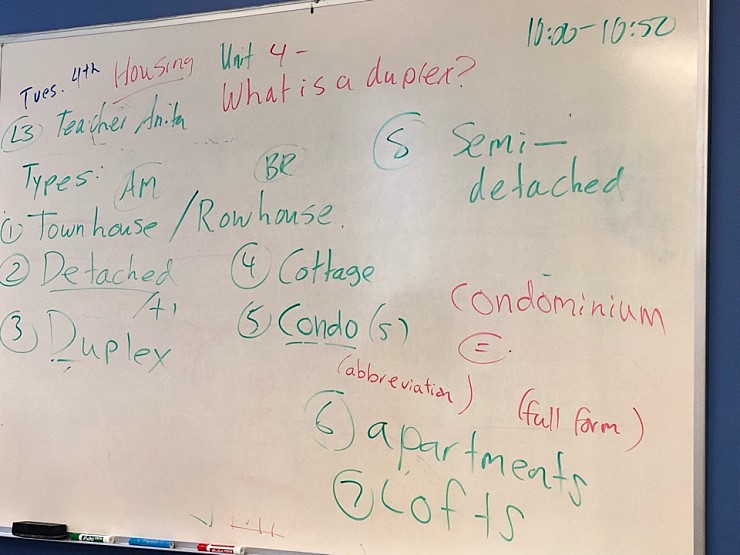 10:00-10:50
Tues. 4th Housing Unit 4 -
What is a duplex?
L3 Teacher Anita
Types: AM BR
1 Townhouse / Rowhouse.
2 Detached
3 Duplex
4 Cottage
5 Condo (s)
(abbreviation)
Condominium
=
(full form)
6 apartments
7 Lofts
8 Semi-
detached